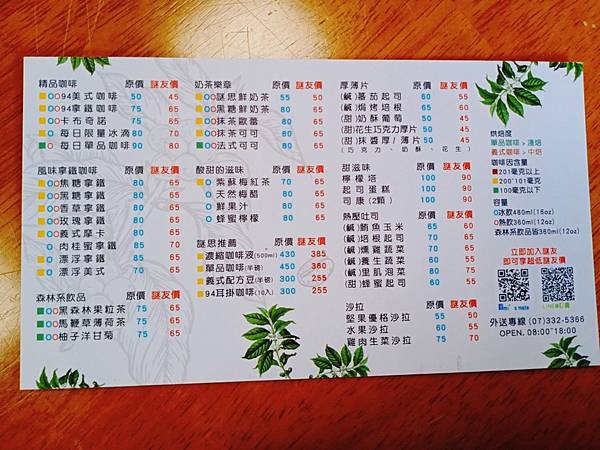 精品咖啡 原價 謎友價
OO94美式咖啡 50 45
OO94拿鐵咖啡 75 65
OO卡布奇諾 75 65
O 每日限量冰滴 80 70
O 每日單品咖啡 90 80
風味拿鐵咖啡 原價 謎友價
OO焦糖拿鐵 80 65
OO黑糖拿鐵 80 65
OO香草拿鐵 80 65
OO玫瑰拿鐵 80 65
OO義式摩卡 80 65
O 肉桂蜜拿鐵 85 70
O 漂浮拿鐵 85 65
O 漂浮美式 80 65
森林系飲品 原價 謎友價
OO黑森林果粒茶 75 65
OO馬鞭草薄荷茶 75 65
OO柚子洋甘菊 75 65
奶茶樂章 原價 謎友價
OO謎思鮮奶茶 55 50
OO黑糖鮮奶茶 80 65
OO抹茶歐蕾 80 65
OO抹茶可可 80 65
OO法式可可 80 65
酸甜的滋味 原價 謎友價
O 紫蘇梅紅茶 70 65
O 天然梅醋 80 65
O 鮮果汁 80 65
O 蜂蜜檸檬 80 65
謎思推薦 原價 謎友價
濃縮咖啡液(500ml) 430 385
單品咖啡(半磅) 450 360
義式配方豆(半磅) 300 255
94耳掛咖啡(10入) 300 255
厚薄片 原價 謎友價
(鹹)蕃茄起司 60 55
(鹹)焗烤培根 65 60
(甜)奶酥葡萄 50 45
(甜)花生巧克力厚片 50 45
(甜)抹醬厚/薄片 50 45
(巧克力、奶酥、花生)
甜滋味 原價 謎友價
檸檬塔 100 90
起司蛋糕 100 90
司康(2顆) 100 90
熱壓吐司 原價 謎友價
(鹹)鮪魚玉米 65 60
(鹹)培根起司 70 65
(鹹)燻雞蔬菜 70 65
(鹹)養生蔬菜 60 55
(鹹)里肌泡菜 80 75
(甜)蜂蜜起司 60 55
沙拉 原價 謎友價
堅果優格沙拉 60 55
水果沙拉 60 55
雞肉生菜沙拉 75 70
烘焙度
單品咖啡>淺焙
義式咖啡>中焙
咖啡因含量
201毫克以上
200~101毫克
100毫克以下
容量
O冰飲480ml(16oz)
O熱飲360ml(12oz)
森林系飲品皆360ml(12oz)
立即加入謎友
即可享超低謎友價
外送專線 (07)332-5366
OPEN. 08:00~18:00